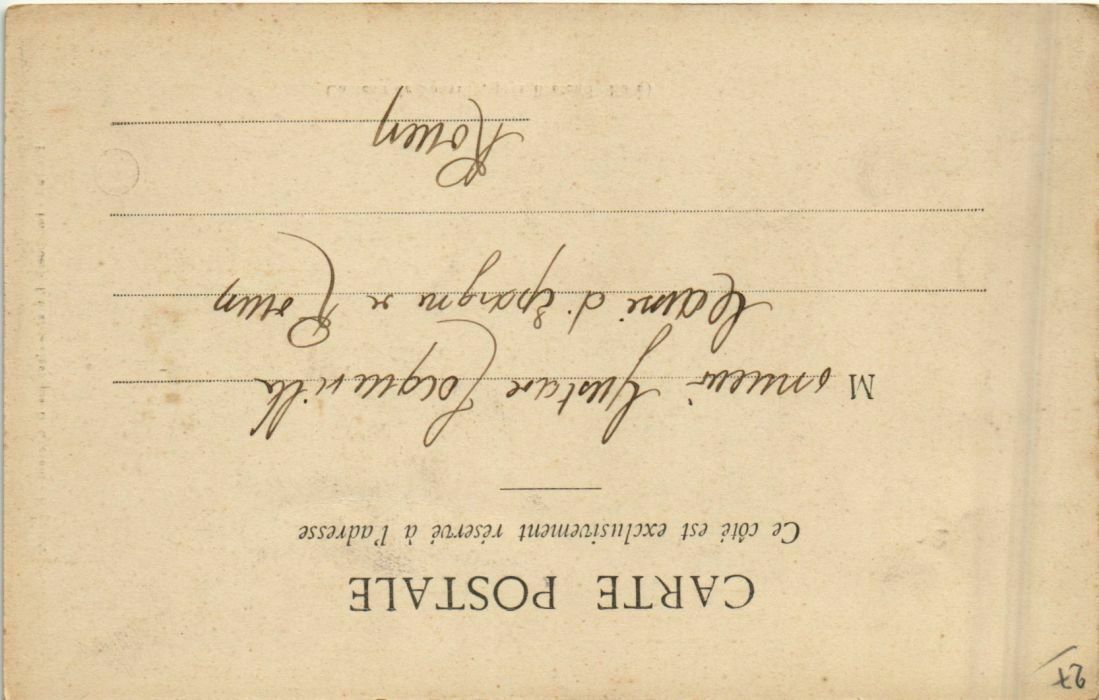 CARTE POSTALE
Ce côté est exclusivement réservé à l'adresse
Monsieur Gustave Cocqueville
Caisse d'Épargne de Rouen
Rouen
27